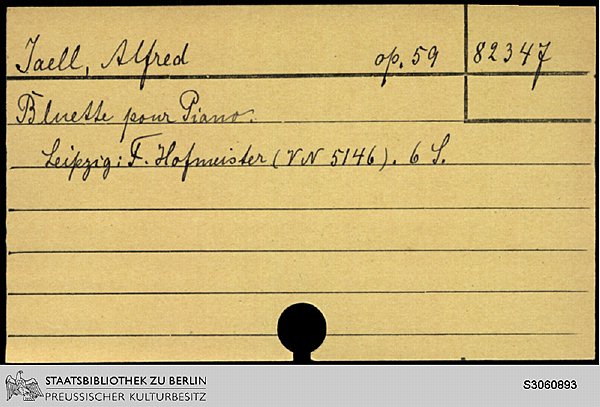 Jaell, Alfred op. 59 82347
Bluette pour Piano.
Leipzig: F. Hofmeister (VN 5146). 6 S.
STAATSBIBLIOTHEK ZU BERLIN
PREUSSISCHER KULTURBESITZ
S3060893